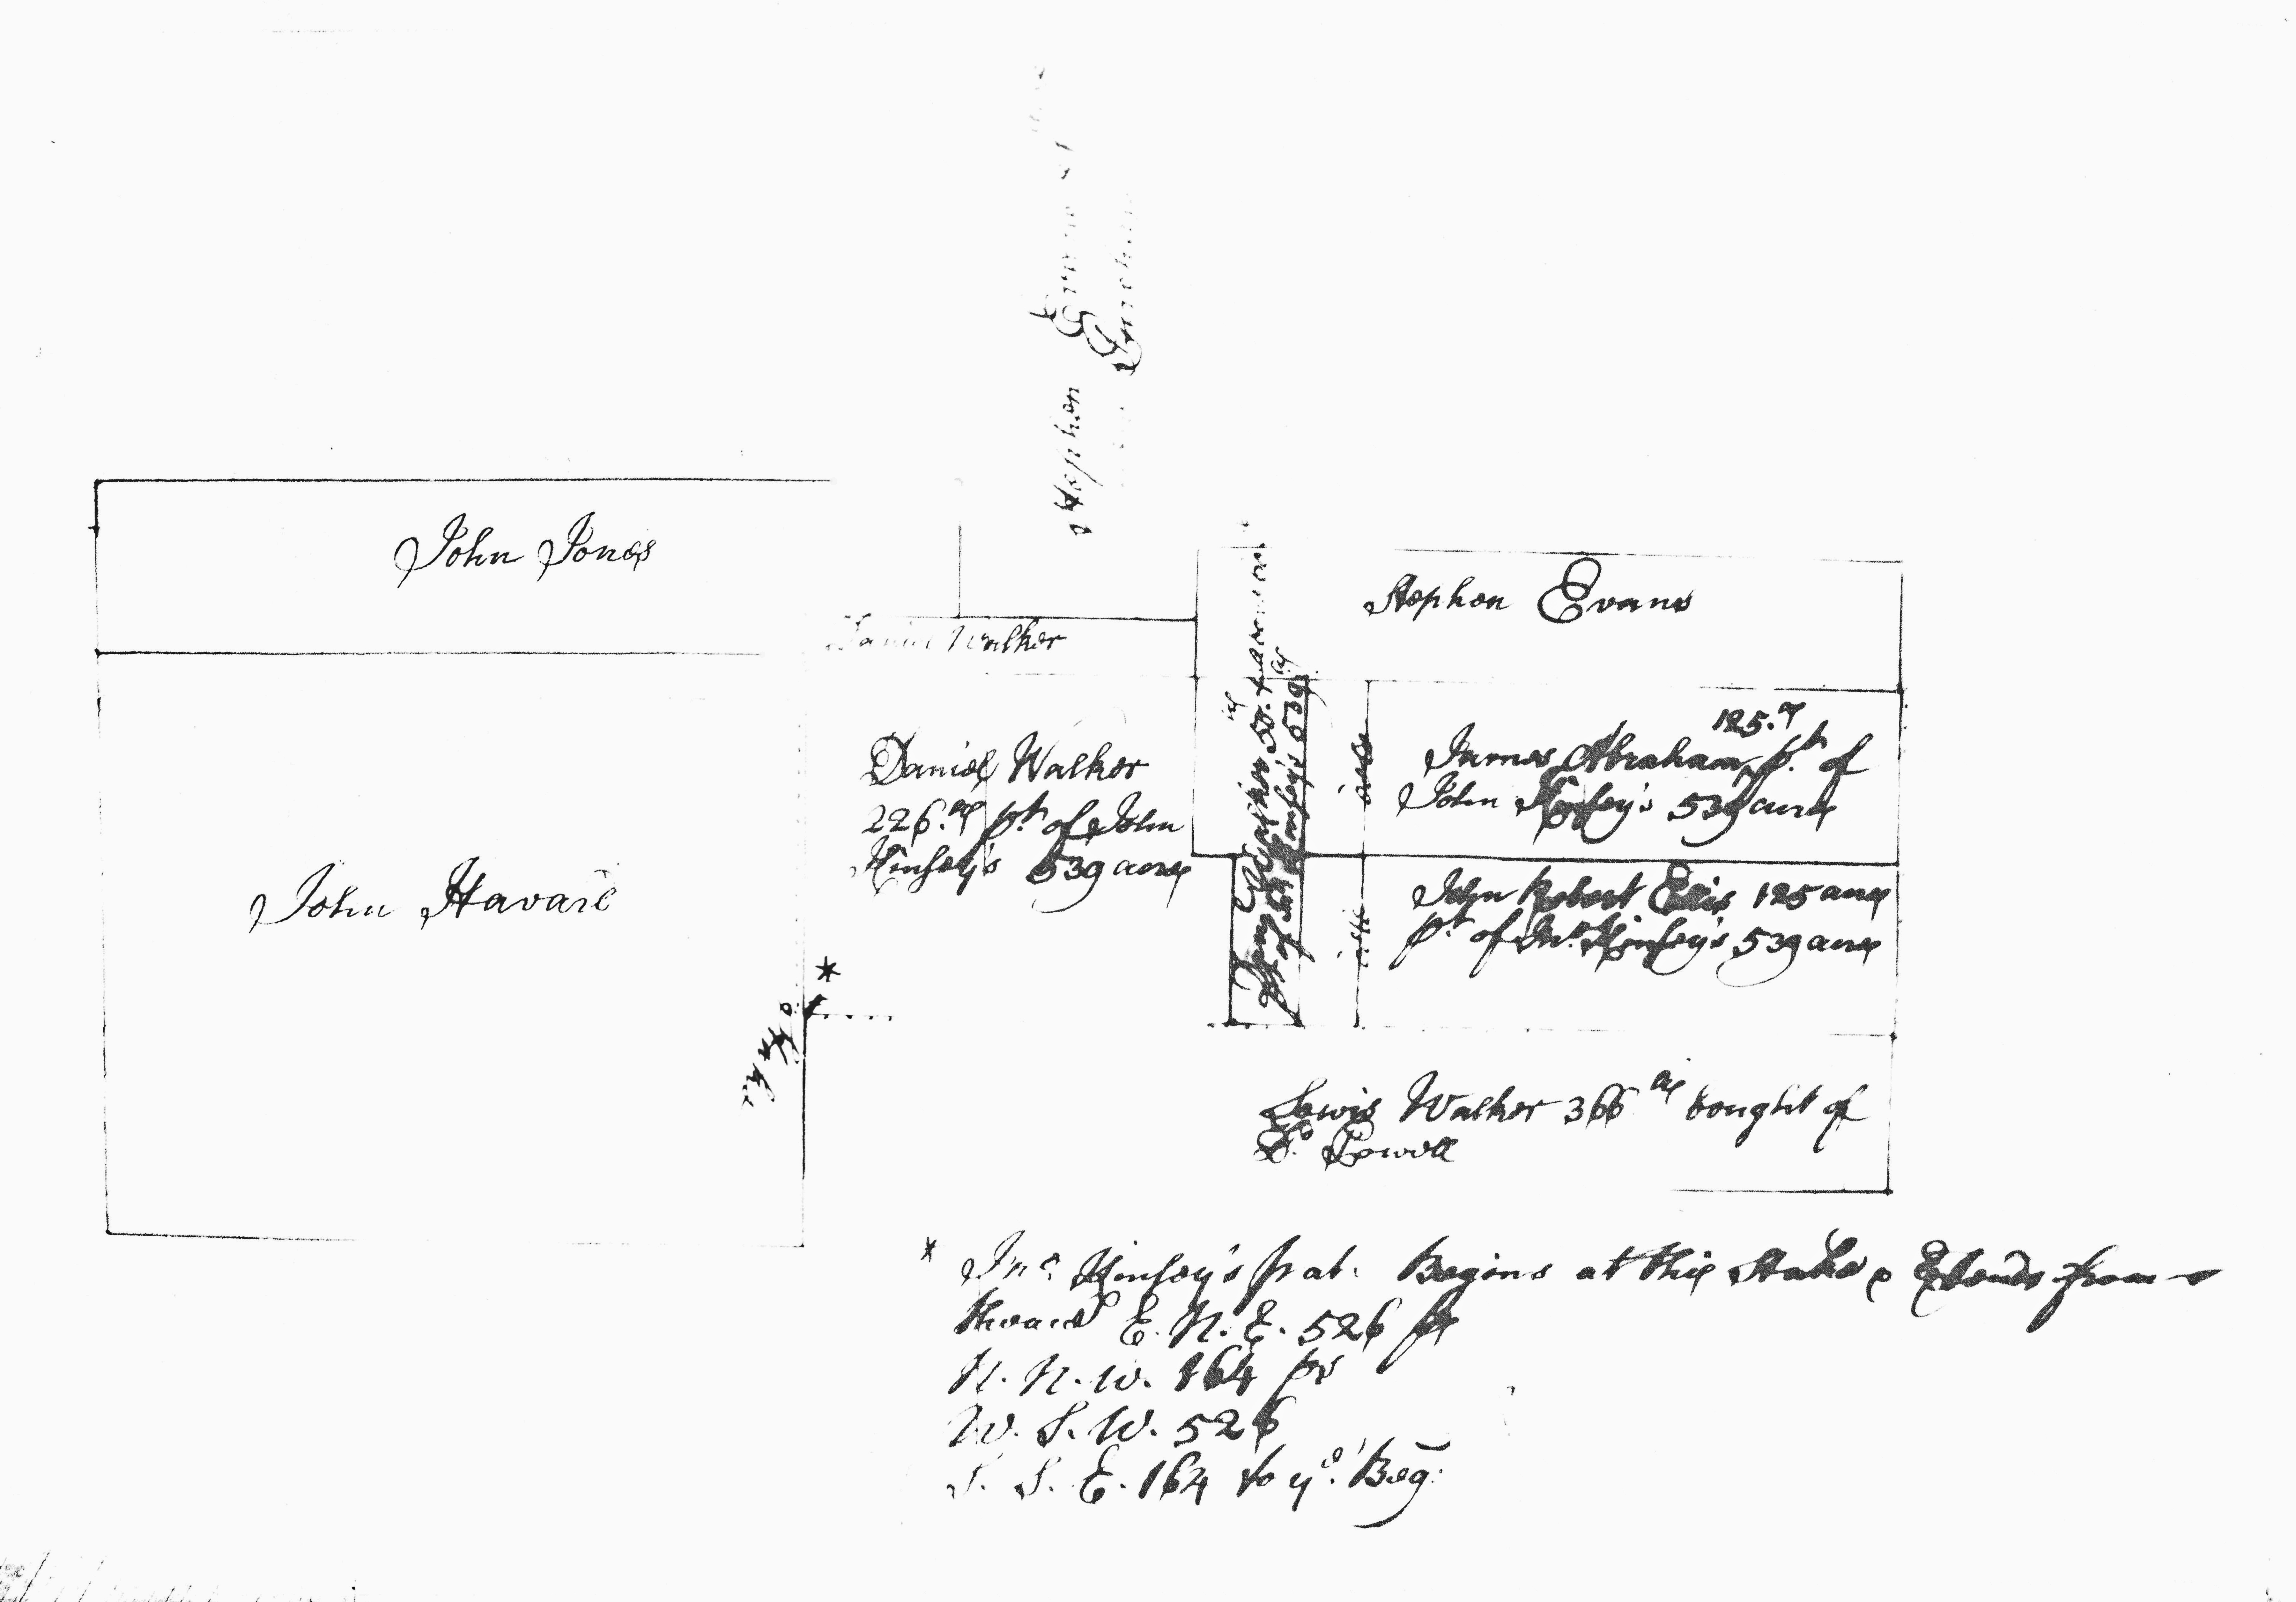 Stephen
John Jones
Stephen Evans
Daniel Walker
125.
James Abraham pt. of
John Kinsey's 539 acres
Daniel Walker
226. pt. of John
Kinsey's 539 acres
of Kinsey's 539
John Robert Ellis 125 acres
pt. of Jno. Kinsey's 539 acres
John Havard
*
Lewis Walker 366 ac bought of
D. Powell
* Jno. Kinsey's pat. Begins at this Stake & Extends from
thence E. N. E. 526 ps
N. N. W. 164 ps
W. S. W. 526
S. S. E. 164 to ye. Beg: